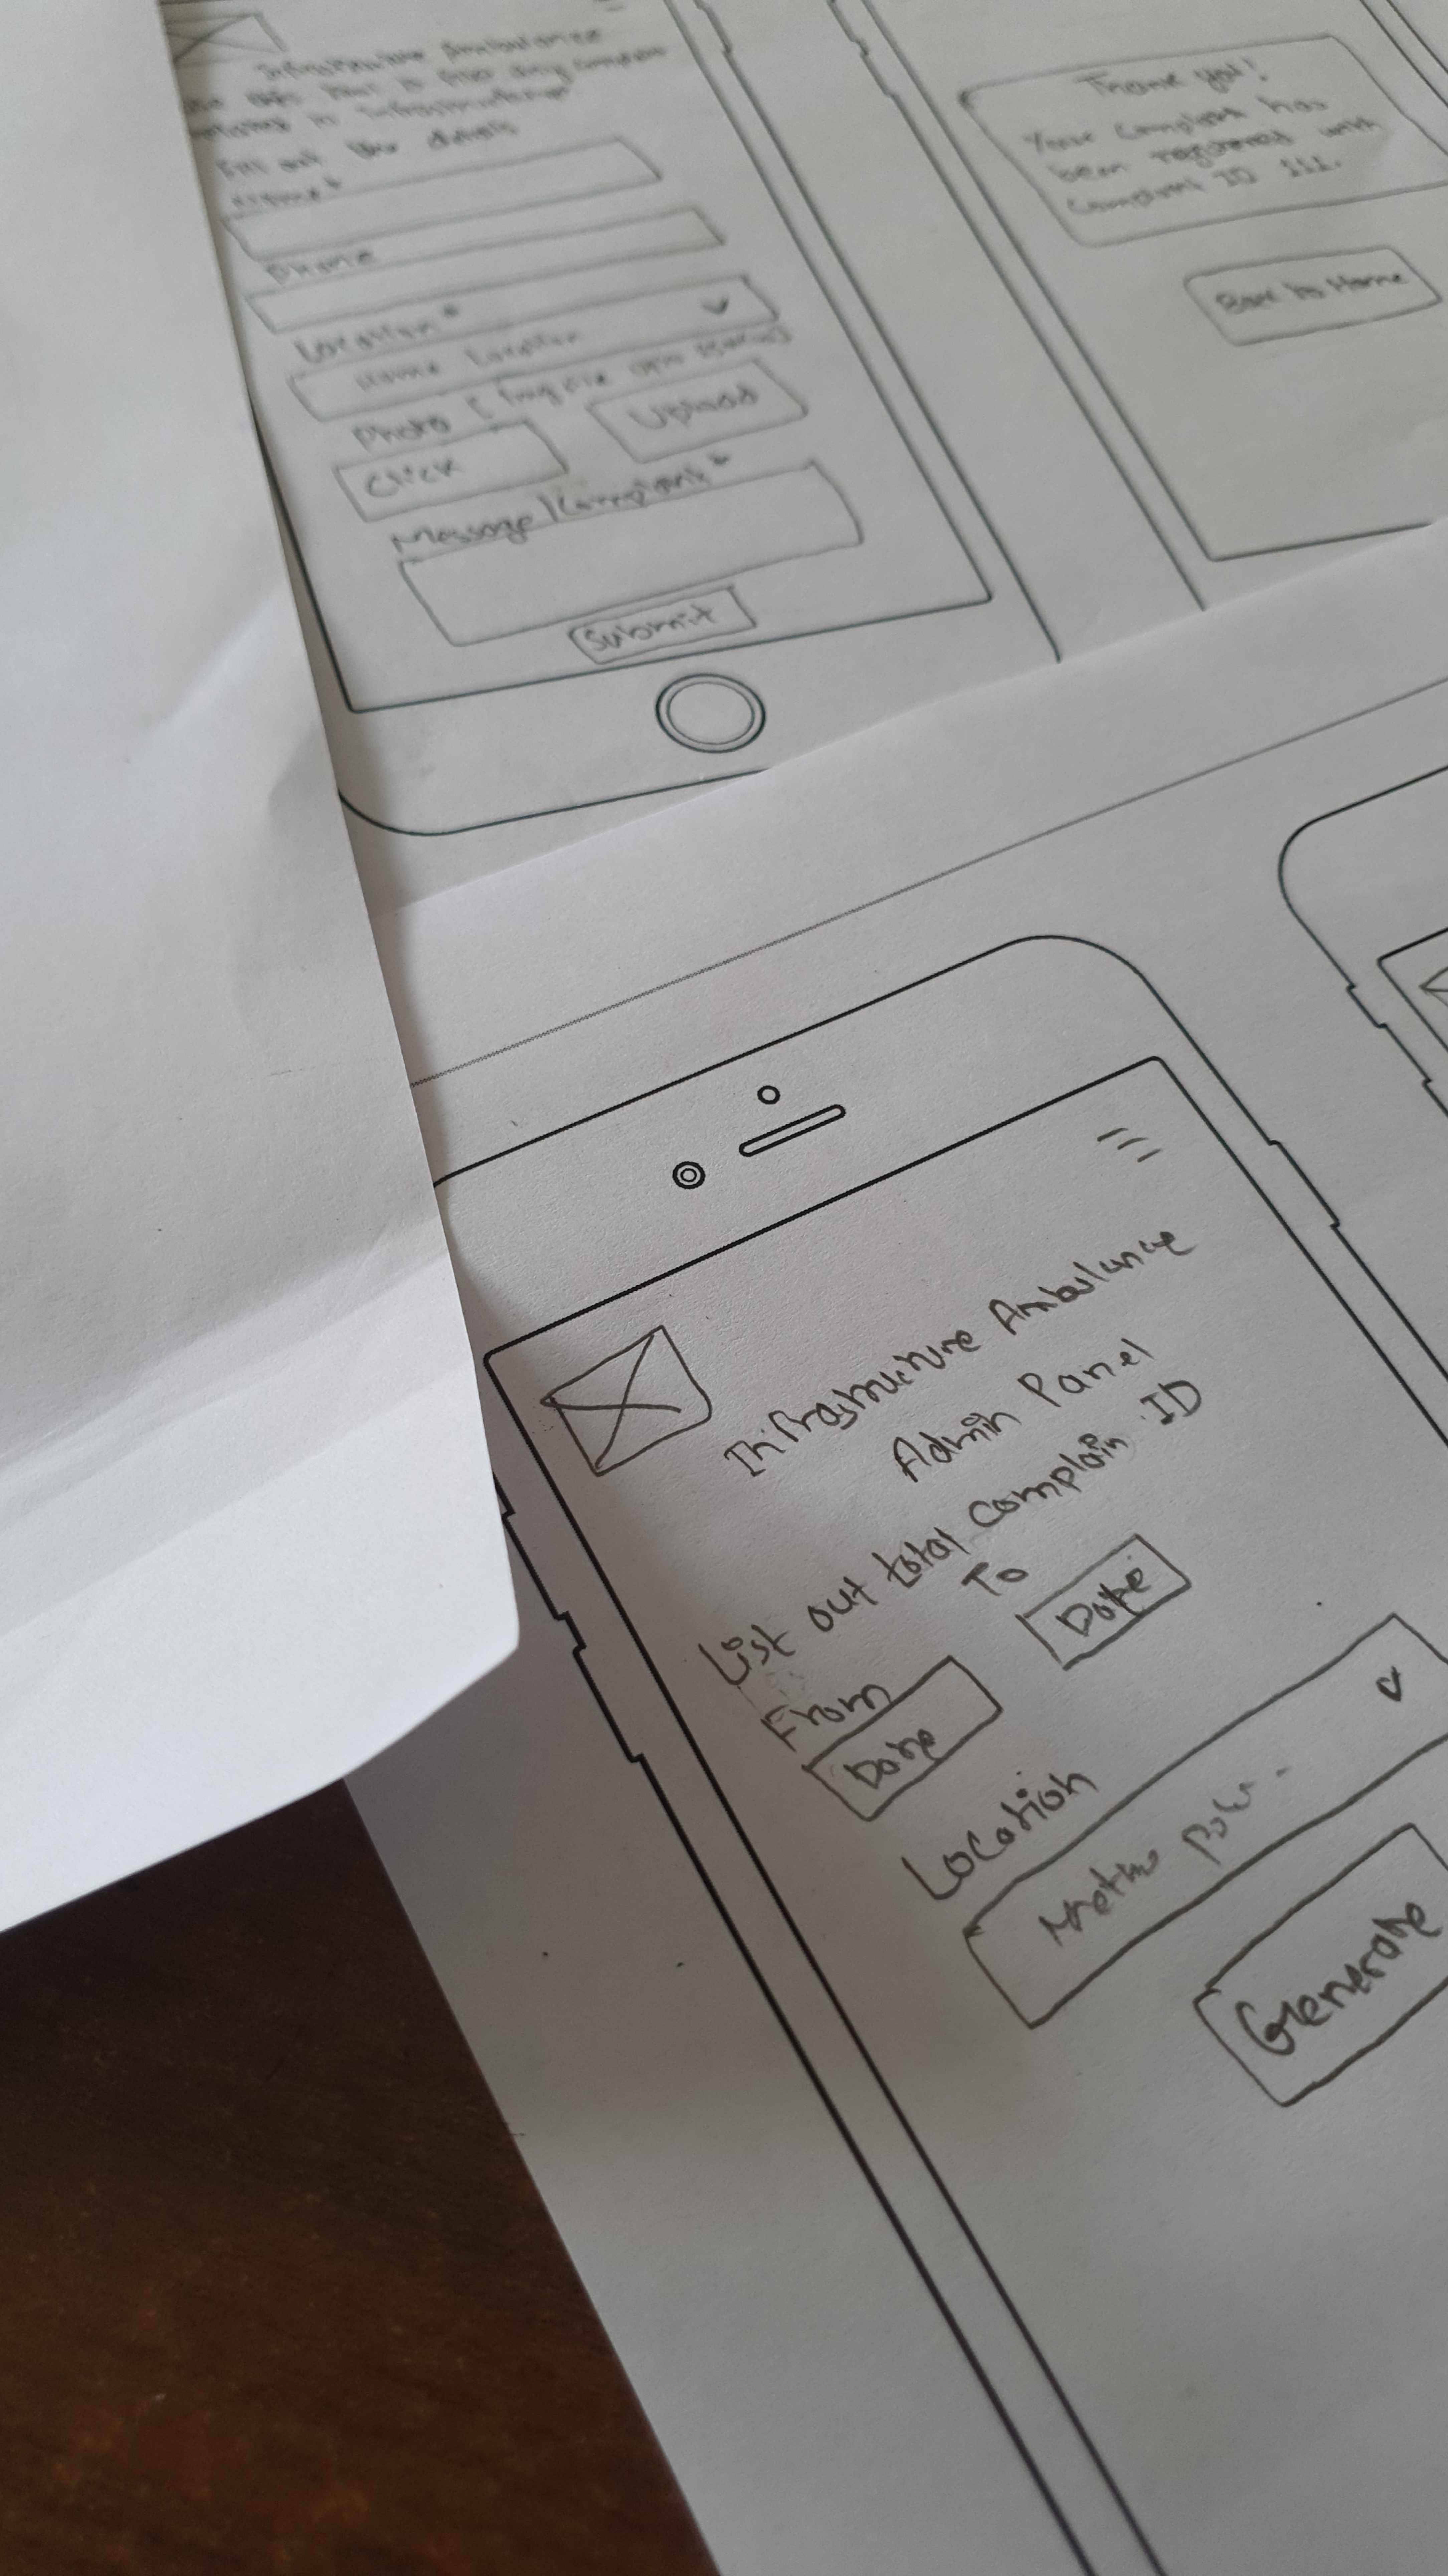 Infrastructure Ambulance
Fill out the details
Name*
Phone
Location*
Home Location
Photo
Click
Upload
Message/Complaint*
Submit
Thank you!
Your Complaint has
been registered with
Complaint ID 111.
Back to Home
Infrastructure Ambulance
Admin Panel
List out total complain ID
From
To
Date
Date
Location
Generate